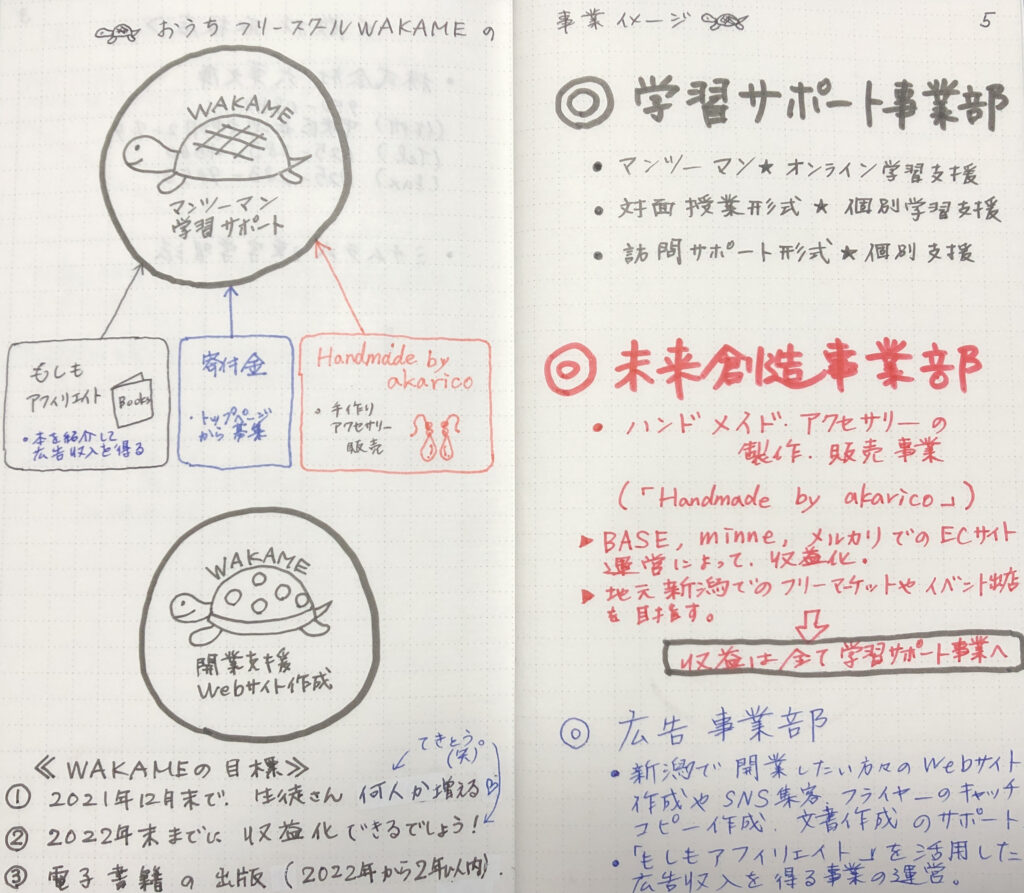 おうちフリースクールWAKAMEの
WAKAME
マンツーマン
学習サポート
もしも
アフィリエイト
Books
・本を紹介して
広告収入を得る
寄付金
・トップページ
から募集
Handmade by
akarico
・手作り
アクセサリー
販売
WAKAME
開業支援
Webサイト作成
てきとう。
(笑)
≪WAKAMEの目標≫
① 2021年12月末で、生徒さん 何人か増える
② 2022年末までに 収益化できるでしょう!
③ 電子書籍の出版 (2022年から2年以内).
事業イメージ
5
◎ 学習サポート事業部
・マンツーマン★オンライン学習支援
・対面授業形式★個別学習支援
・訪問サポート形式★個別支援
◎ 未来創造事業部
・ハンドメイド・アクセサリーの
製作・販売事業
(「Handmade by akarico」)
▶BASE, minne, メルカリでのECサイト
運営によって、収益化.
▶地元新潟でのフリーマーケットやイベント出店
を目指す。
収益は全て学習サポート事業へ
◎ 広告事業部
・新潟で開業したい方々のWebサイト
作成やSNS集客、フライヤーのキャッチ
コピー作成、文書作成のサポート
・「もしもアフィリエイト」を活用した
広告収入を得る事業の運営。